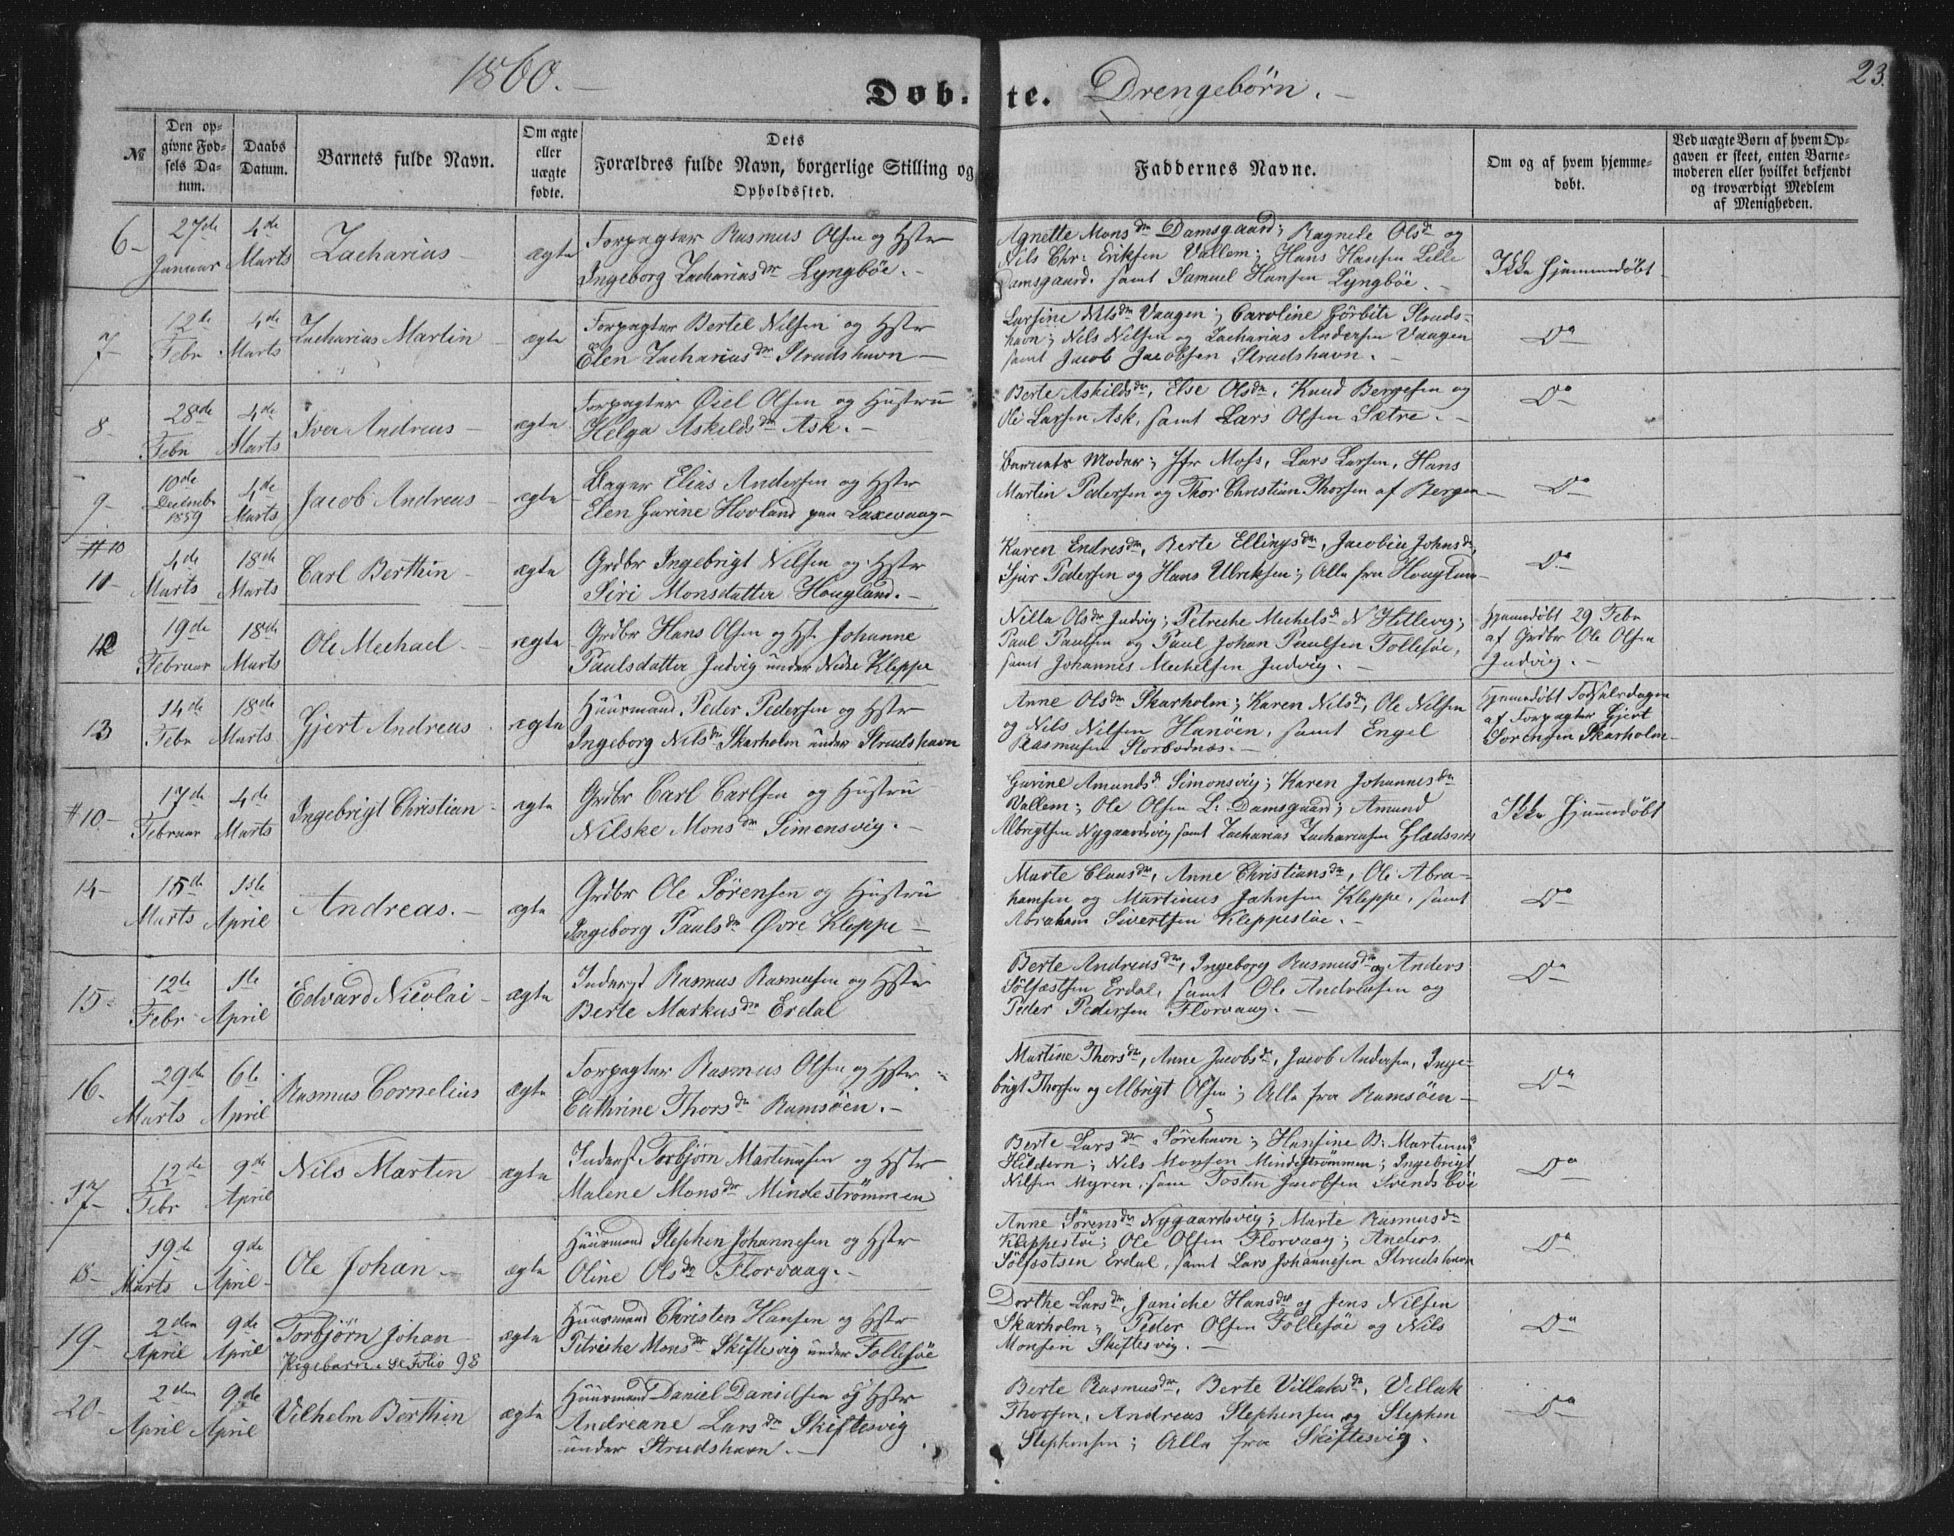 1860.-
Døb- te. Drengebørn.-
23.
№
Den op-
givne Fød-
sels Da-
tum.
Daabs
Datum.
Barnets fulde Navn.
Om ægte
eller
uægte
fødte.
Dets
Forældres fulde Navn, borgerlige Stilling og
Opholdssted.
Faddernes Navne.
Om og af hvem hjemme-
døbt.
Ved uægte Børn af hvem Op-
gaven er skeet, enten Barne-
moderen eller hvilket bekjendt
og troværdigt Medlem
af Menigheden.
6-
27de
Januar
4de
Marts
Zacharias
ægte
Forpagter Rasmus Olsen og Hstr
Ingeborg Zachariasdr Lyngbøe.-
Agnette Monsdr Damsgaard; Ragnele Olsdr og
Nils Chr: Eriksen Vallem; Hans Hansen Lille
Damsgaard, samt Samuel Hansen Lyngbøe.-
Ikke hjemmedøbt
7-
12te
Febr
4de
Marts
Zacharias Martin
ægte
Forpagter Bertel Nilsen og Hstr
Elen Zachariasdr Strudshavn-
Larsine Nilsdr Vaagen; Caroline Struds-
havn; Nils Nilsen og Zacharias Andersen Vaagen
samt Jacob Jacobsen Strudshavn.-
Do
8-
28de
Febr
4de
Marts
Iver Andreas-
ægte
Forpagter Øiel Olsen og Hustru
Helga Askildsdr Ask.-
Berte Askildsdr, Else Olsdr, Knud Bergesen og
Ole Larsen Ask, samt Lars Olsen Sætre.-
Do
9-
10de
Decembr
1859
4de
Marts
Jacob Andreas-
ægte
Bager Elias Andersen og Hstr
Elen Gurine Hovland paa Laxevaag-
Barnets Moder; Jfr Moss, Lars Larsen, Hans
Martin Pedersen og Thor Christian Thorsen af Bergen-
Do
#10
11-
4de
Marts
18de
Marts
Carl Berthin-
ægte
Grdbr Ingebrigt Nilsen og Hstr
Siri Monsdatter Hougland.-
Karen Endresdr, Berte Ellingsdr, Jacobia Johnsdr,
Sjur Pedersen og Hans Ulriksen; Alle fra Hougland-
Do
12
19de
Februar
18de
Marts
Ole Mechael-
ægte
Grdbr Hans Olsen og Hst Johanne
Paulsdatter Judvig under Nedre Kleppe
Nilla Olsdr Judvig; Petreche Michelsdr N Hetlevig;
Paul Paulsen og Paul Johan Paulsen Follesøe,
samt Johannes Michelsen Judvig.-
Hjemmedøbt 29 Febr
af Grdbr Ole Olsen
Judvig.-
13
14de
Febr
18de
Marts
Gjert Andreas
ægte
Huusmand Peder Pedersen og Hstr
Ingeborg Nilsdr Skarholm under Strudshavn
Anne Olsdr Skarholm; Karen Nilsdr, Ole Nilsen
og Nils Nilsen Hanøen, samt Engel
Rasmusen Storbodnæs.-
Hjemmedøbt Fødselsdagen
af Forpagter Gjert
Sørensen Skarholm-
#10-
17de
Februar
4de
Marts
Ingebrigt Christian-
ægte
Grdbr Carl Carlsen og Hustru
Nilske Monsdr Simensvig.-
Gurine Amundsdr Simonsvig; Karen Johannesdr
Vallem; Ole Olsen L: Damsgaard; Amund
Albrigtsen Nygaardsvig, samt Zacharias Zachariasen
Ikke hjemmedøbt
14-
15de
Marts
1ste
April
Andreas.-
ægte
Grdbr Ole Sørensen og Hustru
Ingeborg Paulsdr Øvre Kleppe-
Marte Clausdr, Anne Christiansdr, Ole Abra-
hamsen og Martinus Jahnsen Kleppe, samt
Abraham Sivertsen Kleppestøe.-
Do
15-
12te
Febr
1ste
April
Edvard Nicolai-
ægte
Inderst Rasmus Rasmusen og Hstr
Berte Markusdr Erdal
Berte Andreasdr, Ingeborg Rasmusdr og Anders
Sølfæstsen Erdal, samt Ole Andreasen og
Peder Pedersen Florvaag.-
Do
16-
29de
Marts
6te
April
Rasmus Cornelius
ægte
Forpagter Rasmus Olsen og Hstr
Cathrine Thorsdr Ramsøen.-
Martine Thorsdr, Anne Jacobsdr, Jacob Andersen, Inge-
brigt Thorsen og Albrigt Olsen; Alle fra Ramsøen-
Do
17-
12de
Febr
9de
April
Nils Martin
ægte
Inderst Torbjørn Martinusen og Hstr
Malene Monsdr Mindestrømmen
Berte Larsdr Sørehavn; Hansine B: Martinus
Hildern; Nils Monsen Mindestrømmen; Ingebrigt
Nilsen Myren, sam Tosten Jacobsen Svendsbøe
Do
18-
19de
Marts
9de
April-
Ole Johan.-
ægte
Huusmand Stephen Johannesen og Hstr
Oline Olsdr Florvaag.-
Anne Sørensdr Nygaardsvig; Marte Rasmusdr
Kleppestøe; Ole Olsen Florvaag; Anders
Sølfestsen Erdal, samt Lars Johannesen Strudshavn
Do
19-
2den
April
9de
April
Torbjørn Johan-
Pigebarn, se Folio 98
ægte
Huusmand Christen Hansen og Hstr
Petriche Monsdr Skiftesvig under Follesøe
Dorthe Larsdr, Janiche Hansdr og Jens Nilsen
Skarholm; Peder Olsen Follesøe og Nils
Monsen Skiftesvig.-
Do
20-
2den
April
9de
April
Vilhelm Berthin
ægte
Huusmand Daniel Danielsen og Hstr
Andreane Larsdr Skiftesvig
under Strudshavn.-
Berte Rasmusdr, Berte Villaksdr, Villak
Thorsen, Andreas Stephensen og Stephen
Stephensen; Alle fra Skiftesvig.
Do